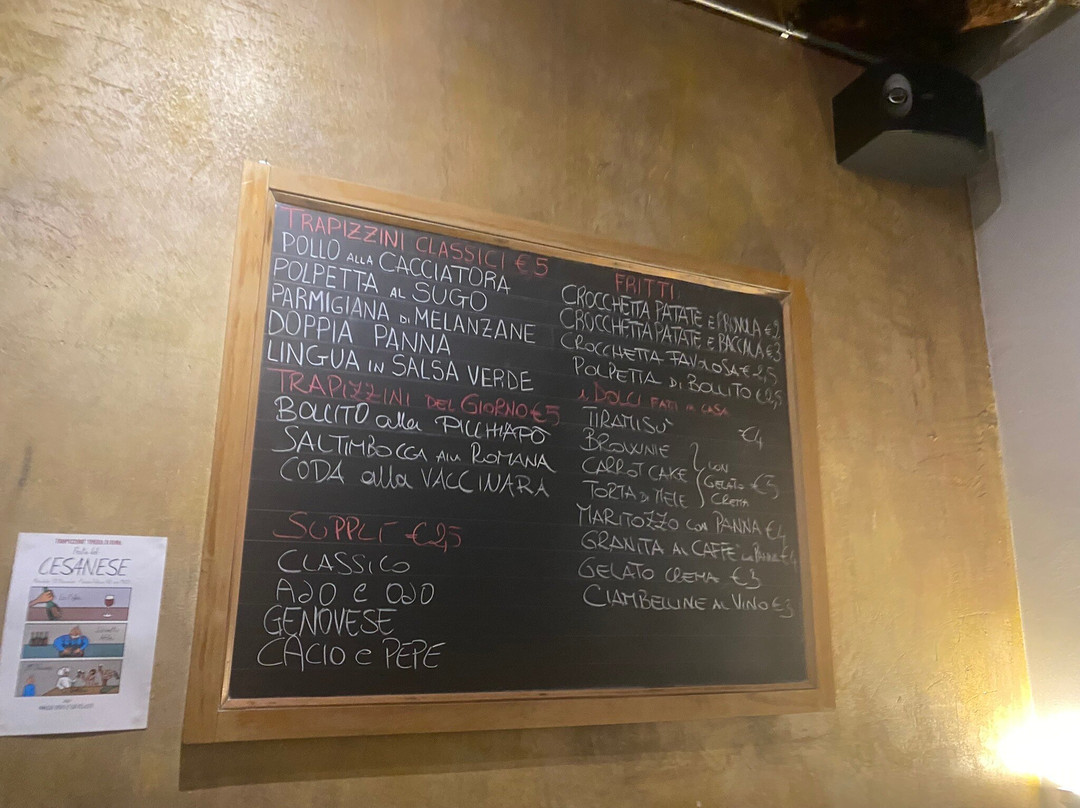 TRAPIZZINI CLASSICI € 5
POLLO ALLA CACCIATORA
POLPETTA AL SUGO
PARMIGIANA DI MELANZANE
DOPPIA PANNA
LINGUA IN SALSA VERDE
TRAPIZZINI DEL GIORNO €5
BOLLITO alla PICCHIAPÒ
SALTIMBOCCA ALLA ROMANA
CODA alla VACCINARA
SUPPLÍ €2,5
CLASSICO
AJO e OJO
GENOVESE
CACIO e PEPE
FRITTI
CROCCHETTA PATATE E PROVOLA €2
CROCCHETTA PATATE E BACCALÀ €3
CROCCHETTA FAVOLOSA € 2,5
POLPETTA DI BOLLITO €2,5
i DOLCI FATTI IN CASA
TIRAMISÙ €4
BROWNIE
CARROT CAKE
TORTA DI MELE
CON
GELATO €5
CREMA
MARITOZZO CON PANNA €4
GRANITA AL CAFFÈ CON PANNA €4
GELATO CREMA €3
CIAMBELLINE AL VINO €3
Festa del
CESANESE